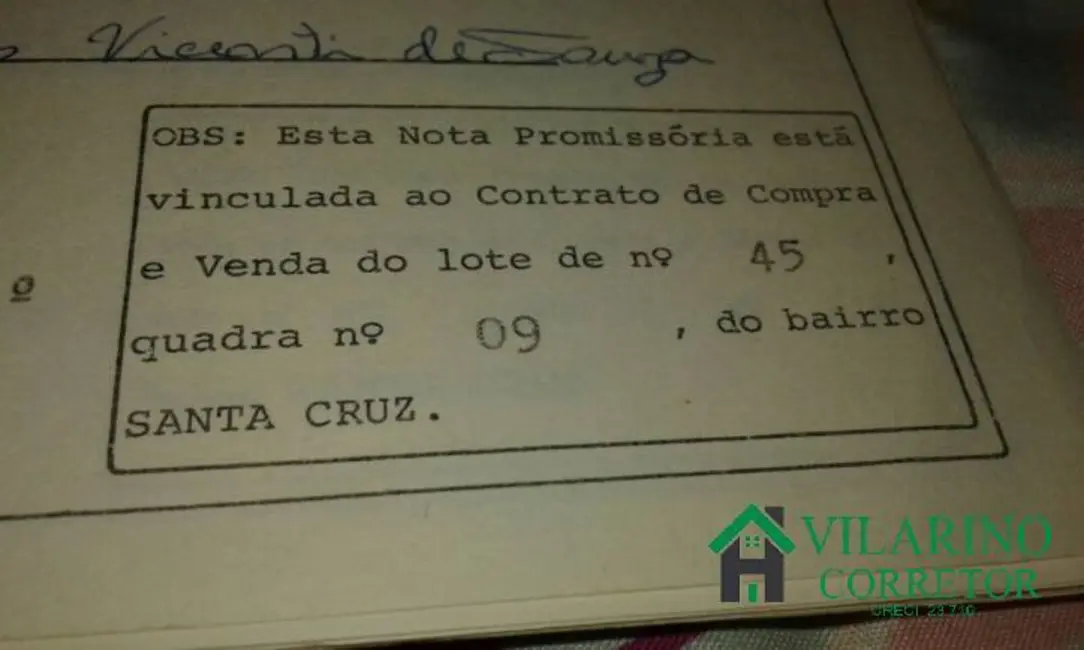 Vicenti de Souza
OBS: Esta Nota Promissória está
vinculada ao Contrato de Compra
e Venda do lote de nº 45 ,
º
quadra nº 09 , do bairro
SANTA CRUZ.
VILARINO
CORRETOR
CRECI 23.710